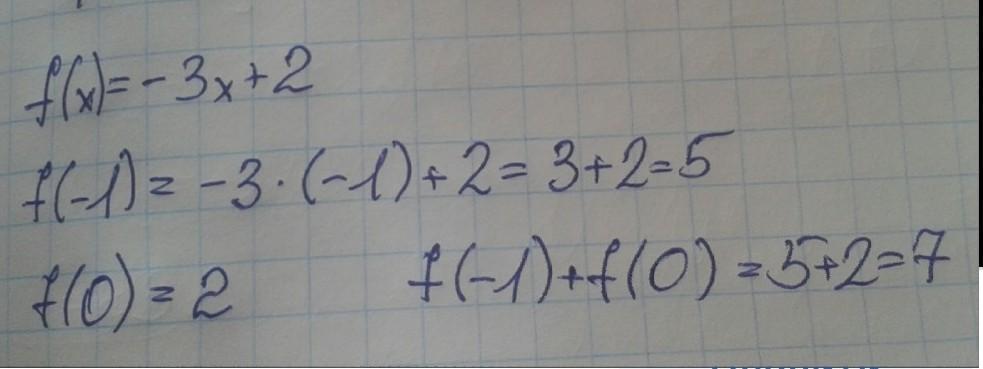 f(x)=-3x+2
f(-1)=-3·(-1)+2=3+2=5
f(0)=2 f(-1)+f(0)=5+2=7